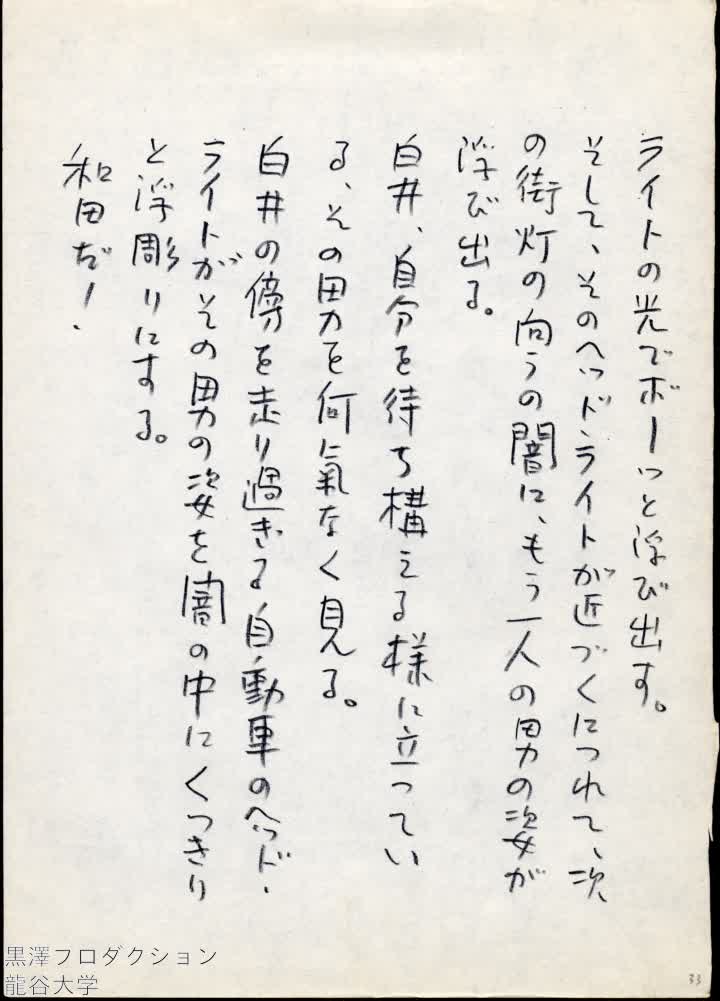 ライトの光でボーッと浮び出す。
そして、そのヘッド・ライトが近づくにつれて、次
の街灯の向うの闇に、もう一人の男の姿が
浮び出る。
白井、自分を待ち構える様に立ってい
る、その男を何氣なく見る。
白井の傍を走り過ぎる自動車のヘッド・
ライトがその男の姿を闇の中にくっきり
と浮彫りにする。
和田だ！
黒澤プロダクション
龍谷大学
33